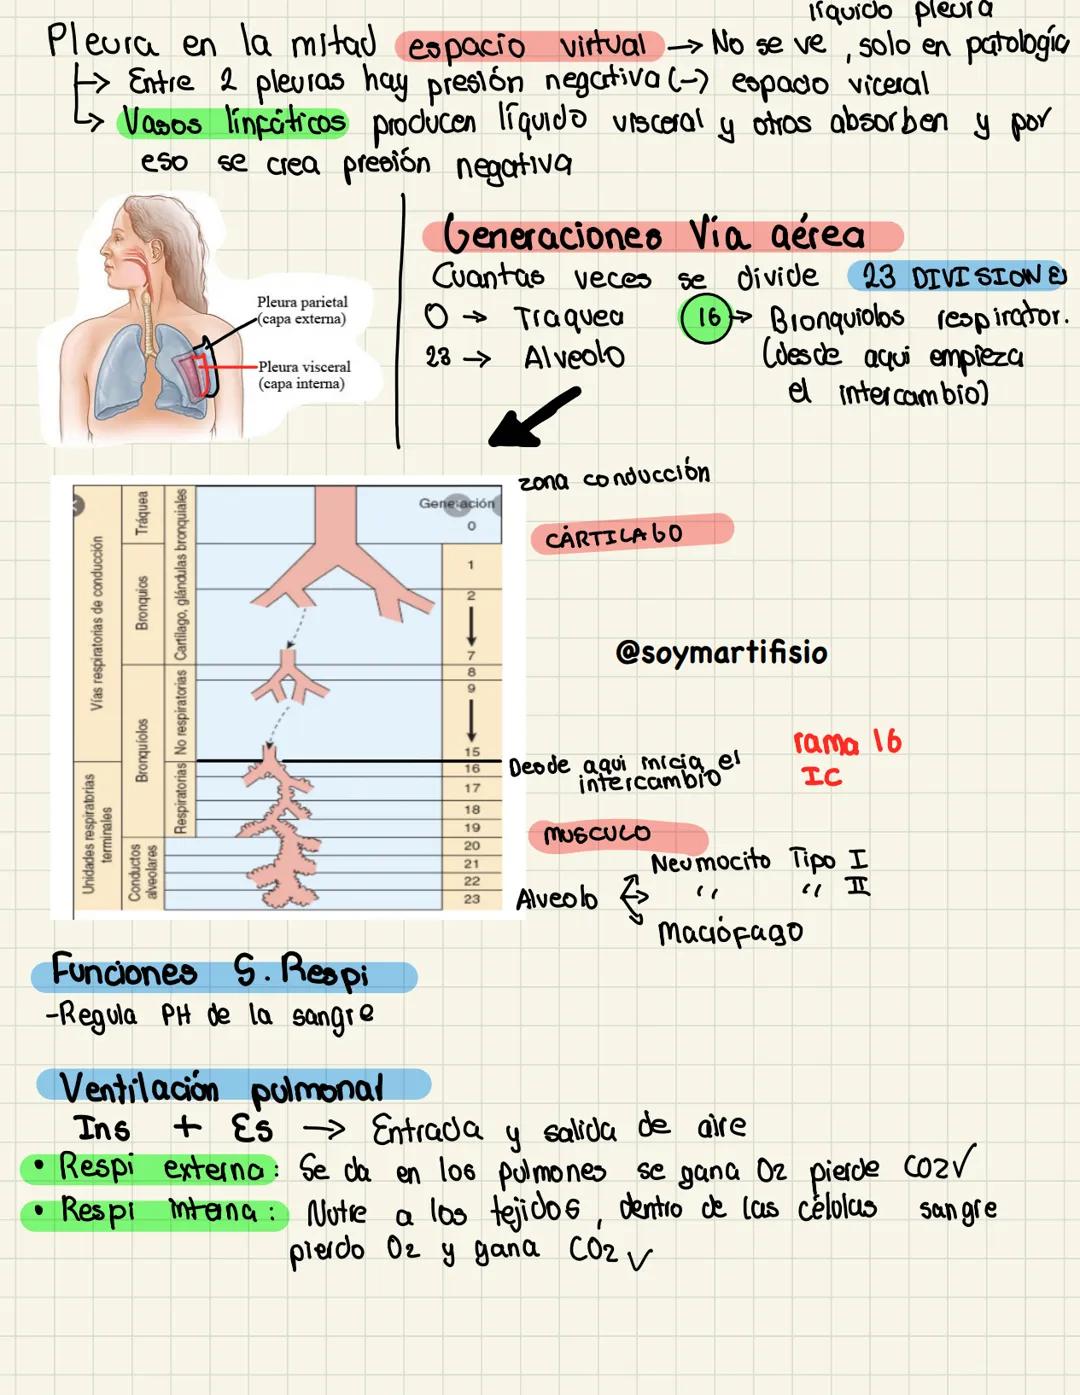 líquido pleura
Pleura en la mitad espacio virtual → No se ve, solo en patología
↳ Entre 2 pleuras hay presión negativa (-) espacio viceral
↳ Vasos linfáticos producen líquido visceral y otros absorben y por
eso se crea presión negativa
Pleura parietal
(capa externa)
Pleura visceral
(capa interna)
Generaciones Vía aérea
Cuantas veces se divide 23 DIVISIONES
0 → Traquea
23 → Alveolo
16 → Bronquiolos respirator.
(desde aqui empieza
el intercambio)
Vías respiratorias de conducción
Unidades respiratorias
terminales
Tráquea
Bronquios
Bronquiolos
Conductos
alveolares
Cartílago, glándulas bronquiales
No respiratorias
Respiratorias
Generación
0
1
2
7
8
9
15
16
17
18
19
20
21
22
23
zona conducción
CÁRTILAGO
@soymartifisio
Desde aqui inicia el
intercambio
rama 16
IC
MUSCULO
Alveolo
Neumocito Tipo I
" " II
Macrófago
Funciones S. Respi
-Regula PH de la sangre
Ventilación pulmonal
Ins + Es → Entrada y salida de aire
• Respi externa: Se da en los pulmones se gana O2 pierde CO2✓
• Respi interna: Nutre a los tejidos, dentro de las células sangre
pierdo O2 y gana CO2 ✓